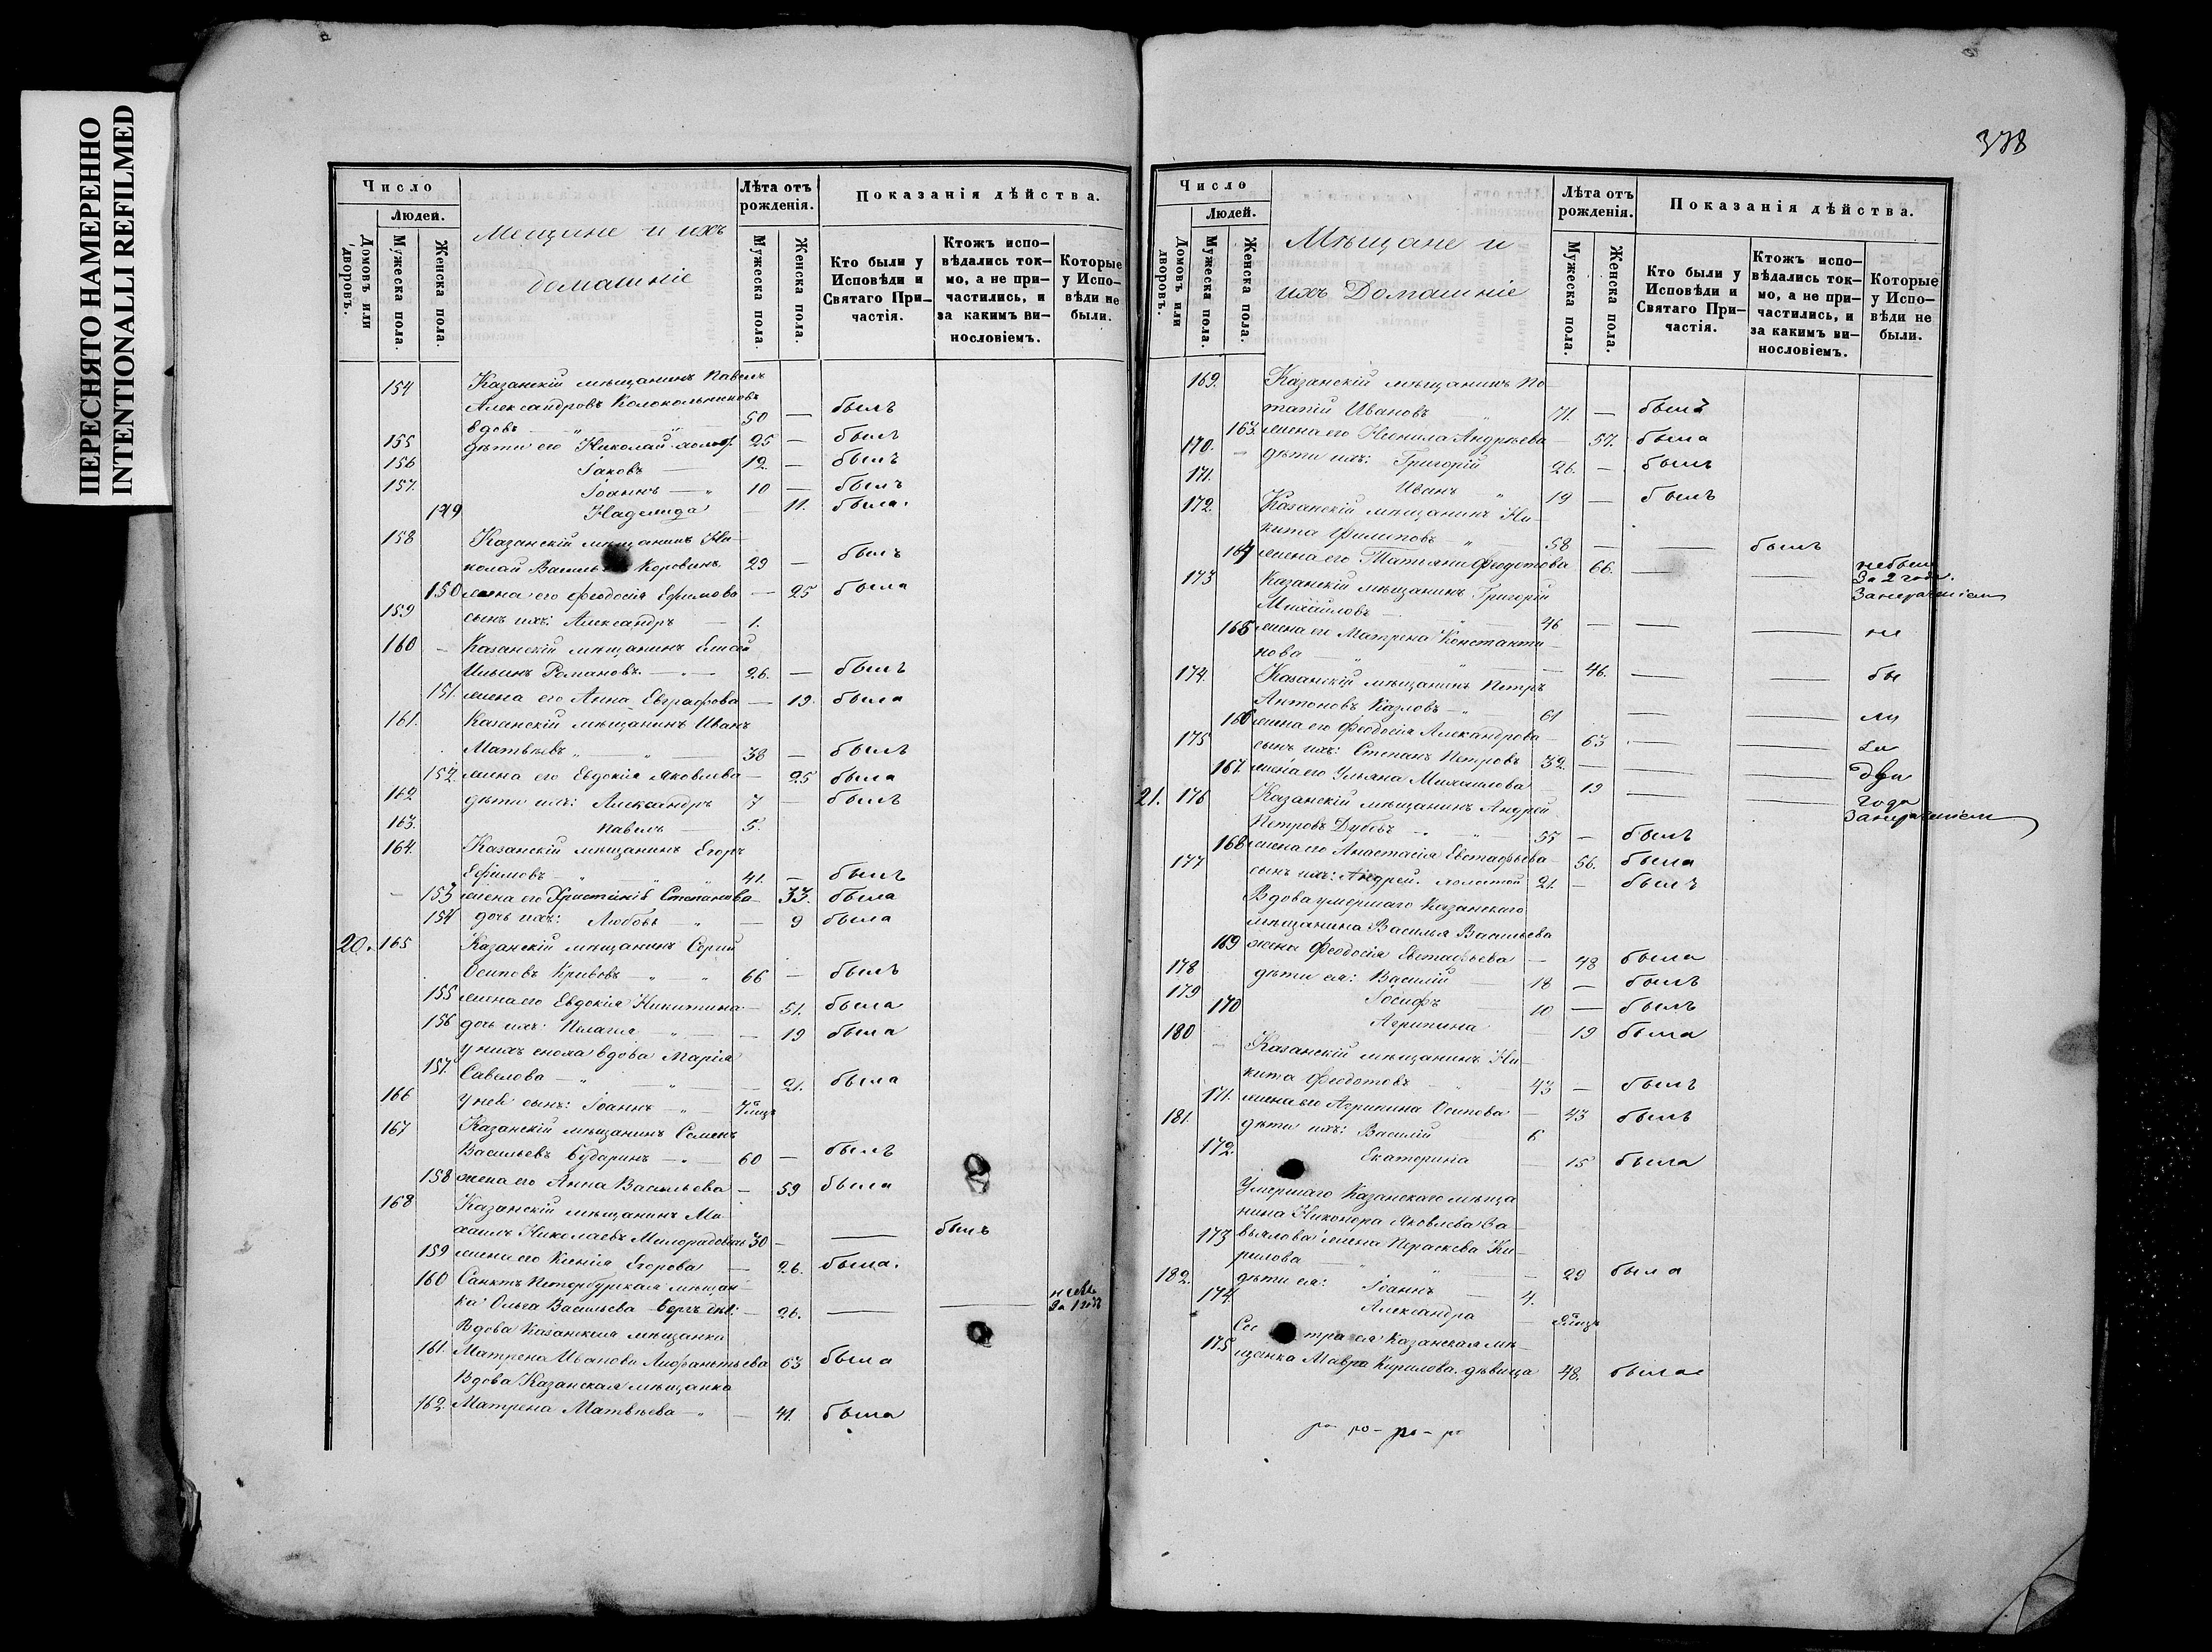 ПЕРЕСНЯТО НАМЕРЕННО
INTENTIONALLI REFILMED
Число
Людей.
Домовъ или дворовъ.
Мужеска пола.
Женска пола.
Мещане и ихъ
домашніе
Лѣта отъ рожденія.
Мужеска пола.
Женска пола.
Показанія дѣйства.
Кто были у Исповѣди и Святаго При-частія.
Ктожъ испо-вѣдались ток-мо, а не при-частились, и за какимъ ви-нословіемъ.
Которые у Испо-вѣди не были.
154 Казанскій мѣщанинъ Павелъ
Александровъ Колокольниковъ
вдовъ — " — 50 — былъ
155 дѣти его Николай холост. 25 — былъ
156 Іаковъ — 12 — былъ
157. Іоаннъ — " 10 — былъ
149 Надежда — 11. была.
158 Казанскій мѣщанинъ Ни-
колай Василь Коровинъ 29 — былъ
150 жена его Феодосія Ефимова — 25 была
159 сынъ ихъ: Александръ — 1.
160 — Казанскій мѣщанинъ Елисей
Ильинъ Романовъ. — " — 26. — былъ
151. жена его Анна Евграфова — 19. была
161. Казанскій мѣщанинъ Иванъ
Матвѣевъ " — " 38 — былъ
152. жена его Евдокія Яковлева — 25 была
162 дѣти ихъ: Александръ 7 — былъ
163. Павелъ — 5.
164. Казанскій мѣщанинъ Егоръ
Ефимовъ — " 41. — былъ
— 153 жена его Христинія Степанова — 33. была
154 дочь ихъ: Любовь — " — 9 была
20. 165 Казанскій мѣщанинъ Сергій
Осиповъ Кривовъ — " " 66 — былъ
155 жена его Евдокія Никитина — 51. была
156 дочь ихъ: Пелагея — " — — 19 была
у нихъ сноха вдова Марія
157. Савелова — " — " — 21. была
166 у ней сынъ: Іоаннъ — " — 7 мцъ
167 Казанскій мѣщанинъ Семенъ
Васильевъ Бударинъ — " — 60 — былъ
158 жена его Анна Васильева — 59 была
168 Казанскій мѣщанинъ Ми-
хаилъ Николаевъ Милорадовъ 30 — — былъ
159 жена его Ксенія Егорова — 26. была.
160 Санктъ Петербургская мѣщан-
ка Ольга Васильева — 26. — —
за 1 годъ
Вдова Казанская мѣщанка
161. Матрена Иванова 63 была
Вдова Казанская мѣщанка
162. Матрена Матвѣева — " — 41. была
378
Число
Людей.
Домовъ или дворовъ.
Мужеска пола.
Женска пола.
Мѣщане и
ихъ Домашніе
Лѣта отъ рожденія.
Мужеска пола.
Женска пола.
Показанія дѣйства.
Кто были у Исповѣди и Святаго При-частія.
Ктожъ испо-вѣдались ток-мо, а не при-частились, и за какимъ ви-нословіемъ.
Которые у Испо-вѣди не были.
169. Казанскій мѣщанинъ По-
тапій Ивановъ " 71. — былъ
163. жена его Неонила Андрѣева — 57. была
170. дѣти ихъ: Григорій 26. — былъ
171. Иванъ " 19 — былъ
172. Казанскій мѣщанинъ Ни-
кита Филиповъ — " — 58 — — былъ
164 жена его Татьяна Феодотова 66. — — небыла
За 2 года.
173 Казанскій мѣщанинъ Григорій
Михаиловъ — 46 — — — не
165 жена его Матрена Константи-
нова " — " — 46. — — бы
174. Казанскій мѣщанинъ Петръ
Антоновъ Казловъ — " 61 — — ли
166 жена его Феодосія Александрова — 63 — — За
175 сынъ ихъ: Степанъ Петровъ 32. — — — два
167. жена его Ульяна Михаилова 19 — — года
21. 176 Казанскій мѣщанинъ Андрей
Петровъ Дубовъ — " — 55 — былъ
168 жена его Анастасія Евстафьева — 56. была
177 сынъ ихъ: Андрей. холостой 21. — былъ
Вдова умершаго Казанскаго
мѣщанина Василья Васильева
169 жена Феодосія Евстафьева — 48 была
178 дѣти ея: Василій — 18 — былъ
179 Іосифъ 10 — былъ
170 Агрипина — 19 была
180 Казанскій мѣщанинъ Ни-
кита Феодотовъ — " 43 — былъ
171. жена его Агрипина Осипова — 43 былъ
181. дѣти ихъ: Василій — 6
172. Екатерина — 15 была
Умершаго Казанскаго мѣща
нина Никонора Яковлева За-
173 вьялова жена Праскева Ки-
рилова — " — " — 29 была
182. дѣти ея: Іоаннъ — 4.
174. Александра — мцъ
Сес тра ея Казанская мѣ-
175 щанка Мавра Кирилова. дѣвица 48. была